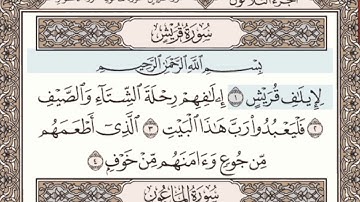 سُورَةُ قُرَيْشٍ
بِسْمِ ٱللَّهِ ٱلرَّحْمَٰنِ ٱلرَّحِيمِ
لِإِيلَٰفِ قُرَيْشٍ ١ إِۦلَٰفِهِمْ رِحْلَةَ ٱلشِّتَآءِ وَٱلصَّيْفِ
٢ فَلْيَعْبُدُوا۟ رَبَّ هَٰذَا ٱلْبَيْتِ ٣ ٱلَّذِىٓ أَطْعَمَهُم
مِّن جُوعٍ وَءَامَنَهُم مِّنْ خَوْفٍۭ ٤
سُورَةُ ٱلْمَاعُونِ